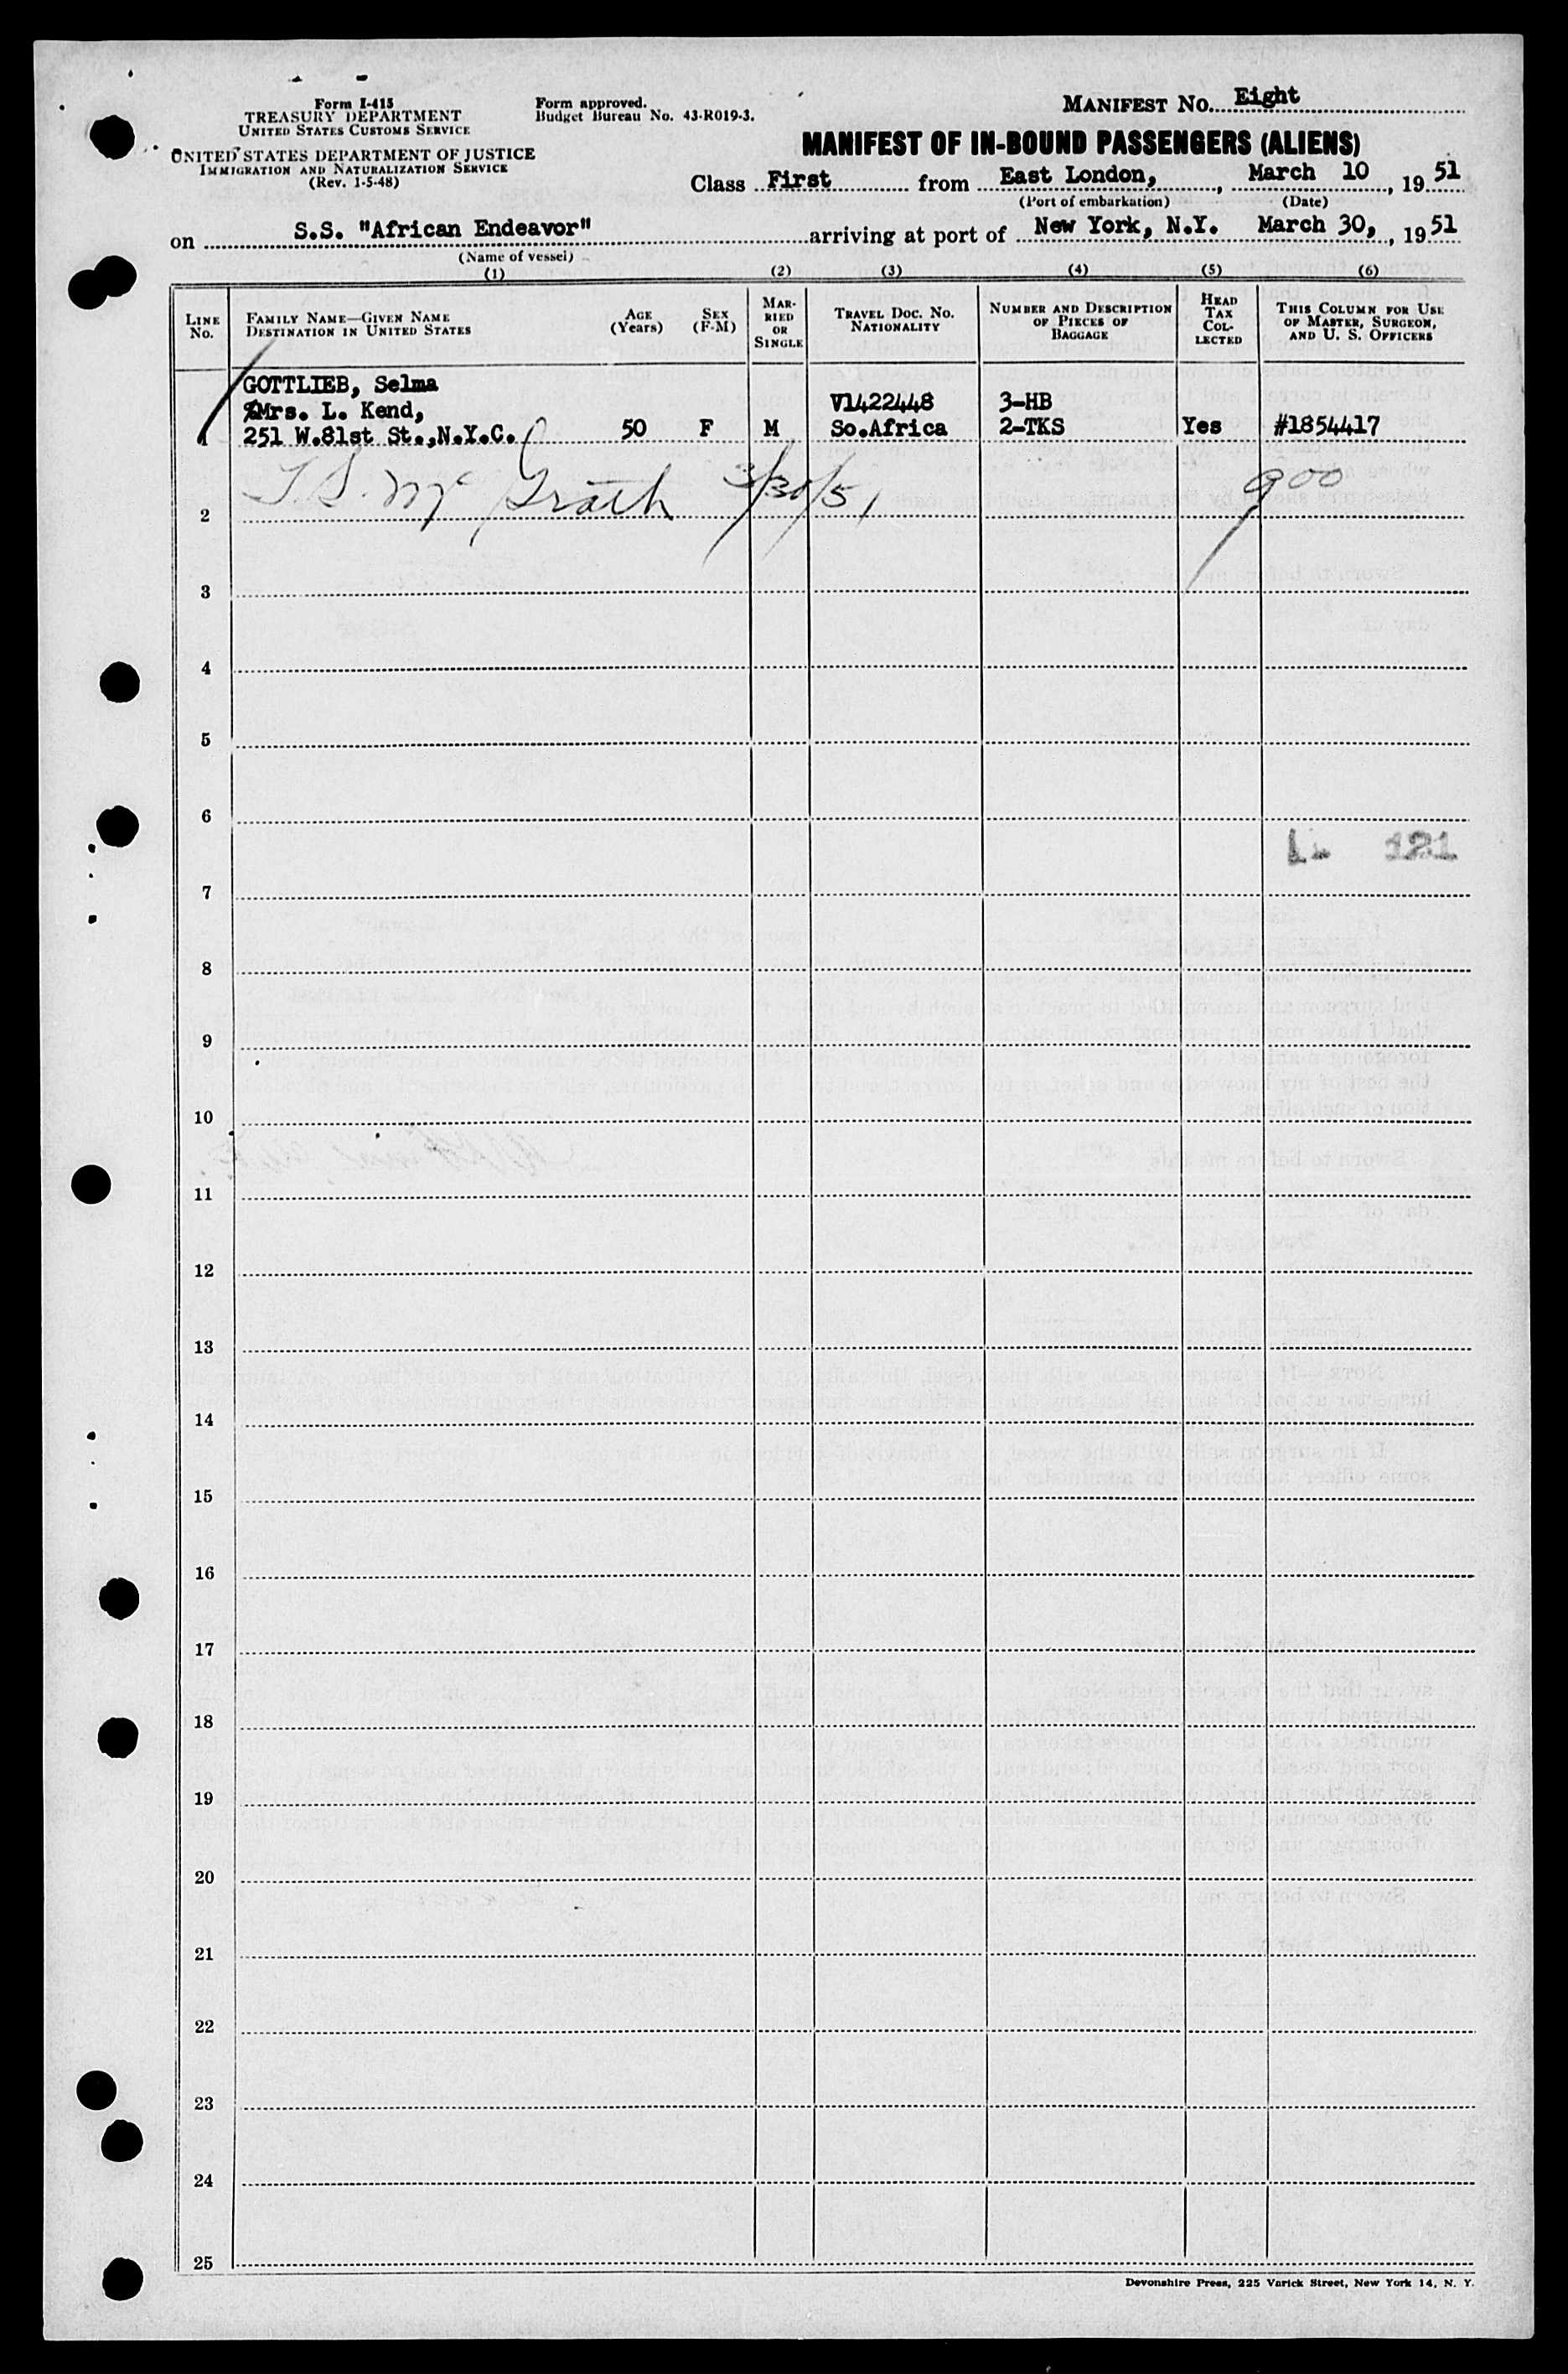 Form I-415
TREASURY DEPARTMENT
UNITED STATES CUSTOMS SERVICE
UNITED STATES DEPARTMENT OF JUSTICE
IMMIGRATION AND NATURALIZATION SERVICE
(Rev. 1-5-48)
Form approved.
Budget Bureau No. 43-R019-3.
MANIFEST No. Eight
MANIFEST OF IN-BOUND PASSENGERS (ALIENS)
Class First from East London, , March 10 , 19 51
(Port of embarkation) (Date)
on S.S. "African Endeavor" arriving at port of New York, N.Y. March 30, , 19 51
(Name of vessel)
(1) (2) (3) (4) (5) (6)
LINE No.
FAMILY NAME—GIVEN NAME
DESTINATION IN UNITED STATES
AGE (Years)
SEX (F-M)
MARRIED OR SINGLE
TRAVEL DOC. NO.
NATIONALITY
NUMBER AND DESCRIPTION OF PIECES OF BAGGAGE
HEAD TAX COLLECTED
THIS COLUMN FOR USE OF MASTER, SURGEON, AND U. S. OFFICERS
GOTTLIEB, Selma
%Mrs. L. Kend, V1422448 3-HB
1 251 W.81st St.,N.Y.C. 50 F M So.Africa 2-TKS Yes #1854417
T. S. McGrath 3/30/51 900
2
3
4
5
6
121
7
8
9
10
11
12
13
14
15
16
17
18
19
20
21
22
23
24
25
Devonshire Press, 225 Varick Street, New York 14, N. Y.